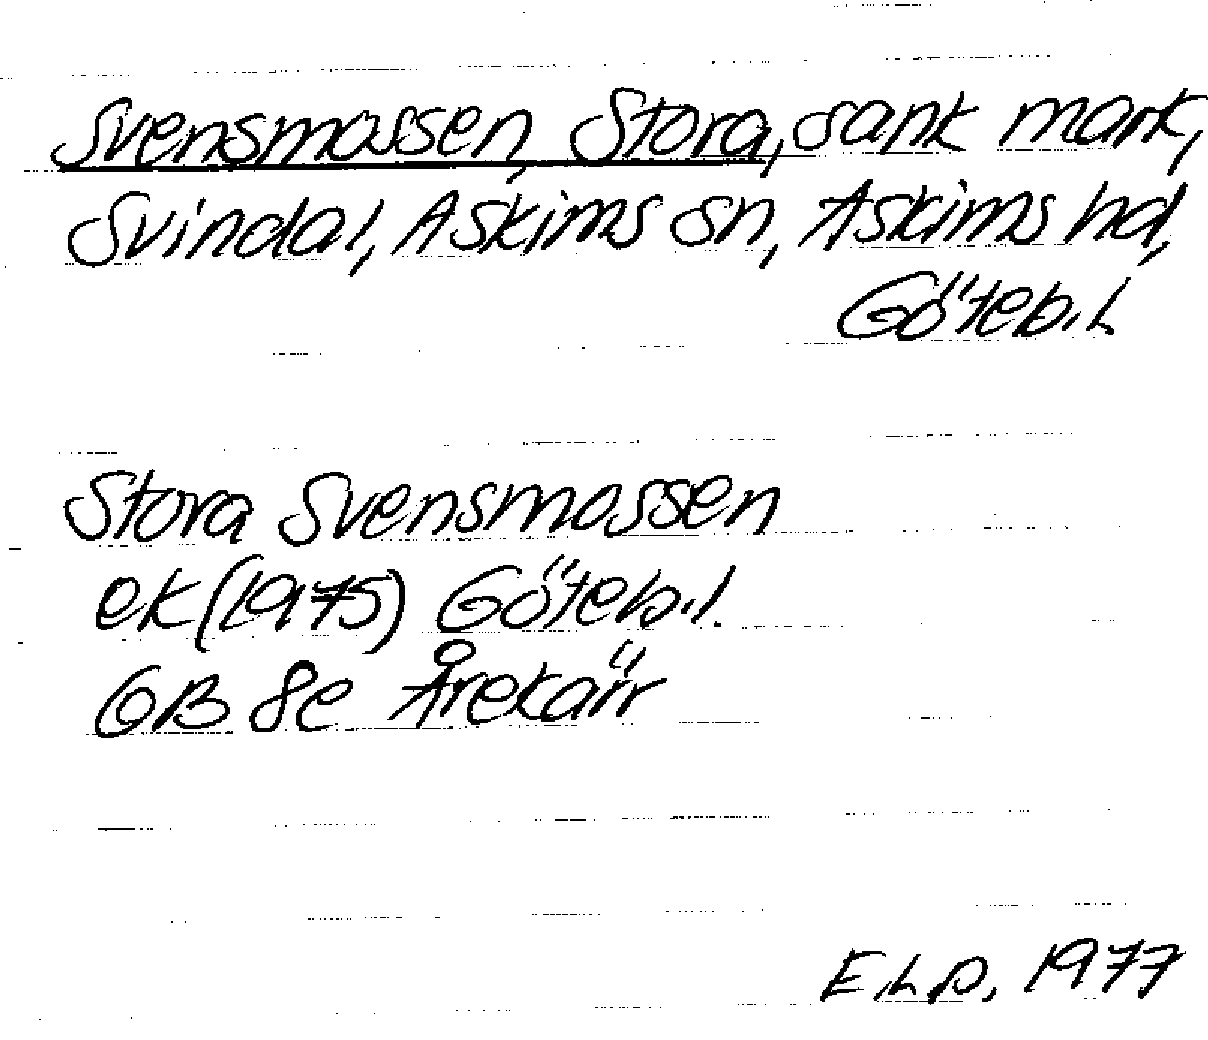 Svensmossen, Stora, sank mark,
Svindal, Askims sn, Askims hd,
Göteb.l.
Stora Svensmossen
ek (1975) Göteb.l.
GB 8e Årekärr
E.L.P. 1977